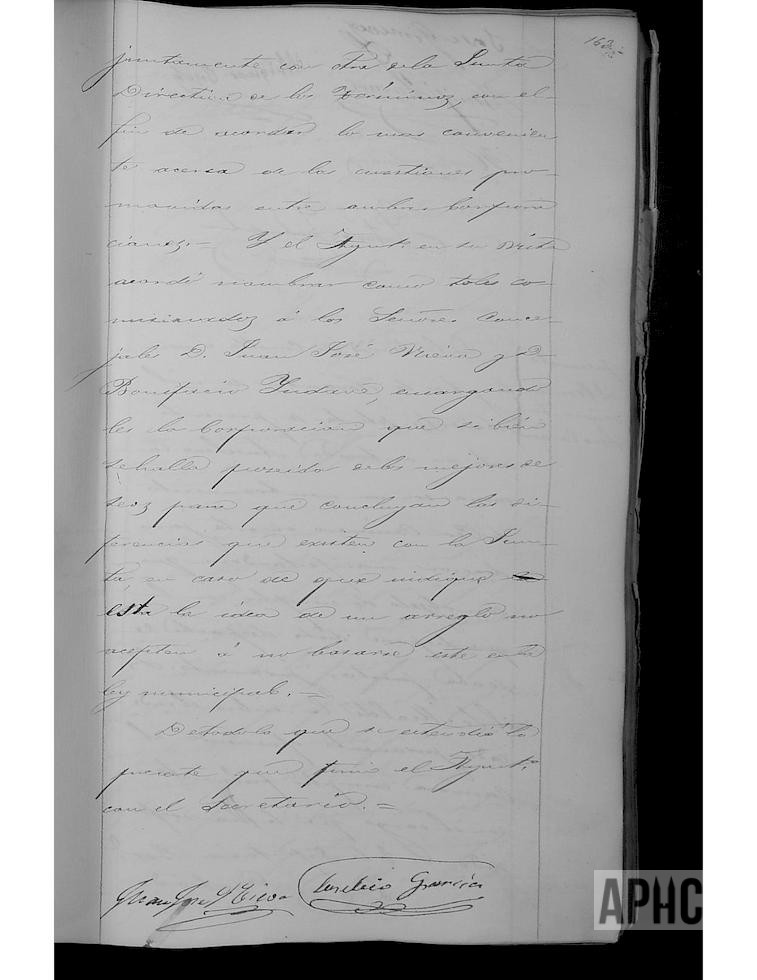 162
juntamente con otra de la Junta
Directiva de los Términos, con el
fin de acordar lo mas convenien
te acerca de las cuestiones pro-
movidas entre ambas Corpora
ciones.= Y el Ayunt.º en su vista
acordó nombrar como tales co-
misionados á los Señores Conce-
jales D. Juan José Viciva y D.
Bonifacio encargando
les la Corporacion que si bien
se halla poseida de los mejores de
seos para que concluyan las di-
ferencias que existen con la Jun-
ta, en caso de que indique
ésta la idea de un arreglo no
acepten á no basarse este en la
ley municipal.=
De todo lo que se estendió la
presente que firma el Ayunt.º
con el Secretario.=
Juan José
APHC